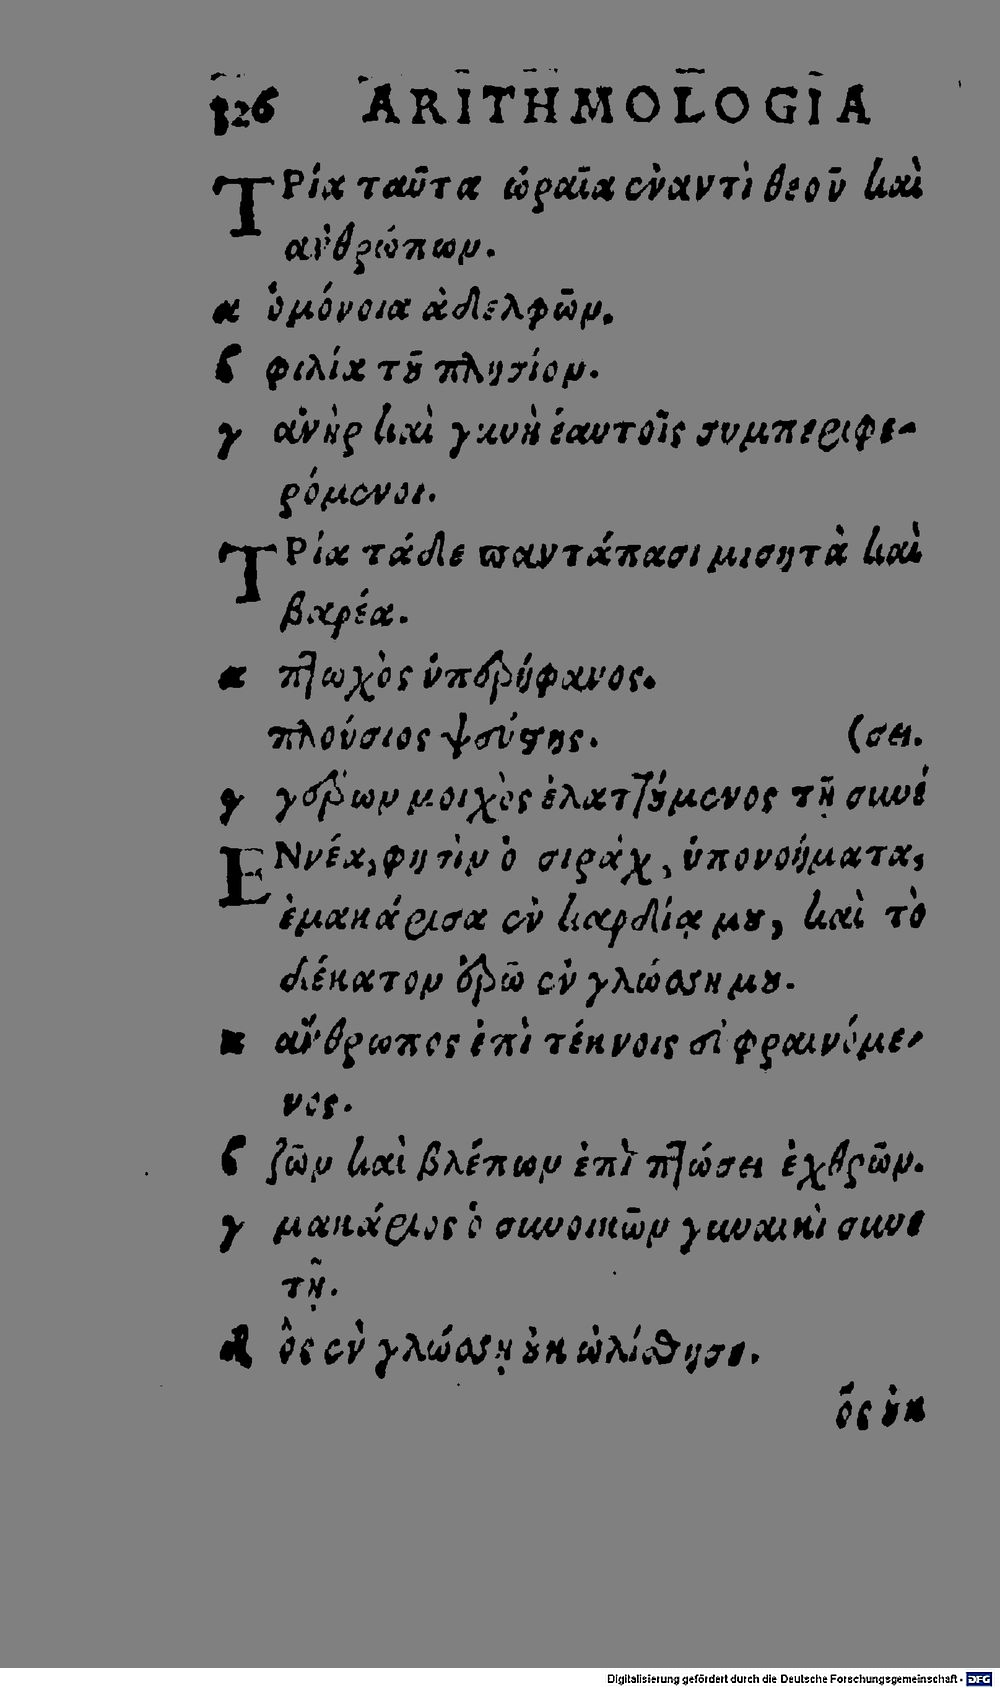 126 ARITHMOLOGIA
ΤΡία ταῦτα ὡραῖα ἐναντὶ θεοῦ καὶ
ανθρώπων.
α ὁμόνοια ἀδελφῶν.
β φιλία τοῦ πλησίον.
γ ανὴρ καὶ γυνὴ ἑαυτοῖς συμπεριφε-
ρόμενοι.
ΤΡία τάδε παντάπασι μισητὰ καὶ
βαρέα.
α πτωχὸς ὑπερήφανος.
πλούσιος ψεύστης. (σει.
γ γέρων μοιχὸς ἐλαττούμενος τῇ συνέ
ΕΝνέα, φησὶν ὁ σιράχ, ὑπονοήματα,
ἐμακάρισα ἐν καρδίᾳ μου, καὶ τὸ
δέκατον ἐρῶ ἐν γλώσση μου.
α ἄνθρωπος ἐπὶ τέκνοις εὐφραινόμε-
νος.
β ζῶν καὶ βλέπων ἐπὶ πτώσει ἐχθρῶν.
γ μακάριος ὁ συνοικῶν γυναικὶ συνε
τῇ.
δ ὃς ἐν γλώσσῃ οὐκ ὠλίσθησε.
ὃς οὐκ
Digitalisierung gefördert durch die Deutsche Forschungsgemeinschaft - DFG